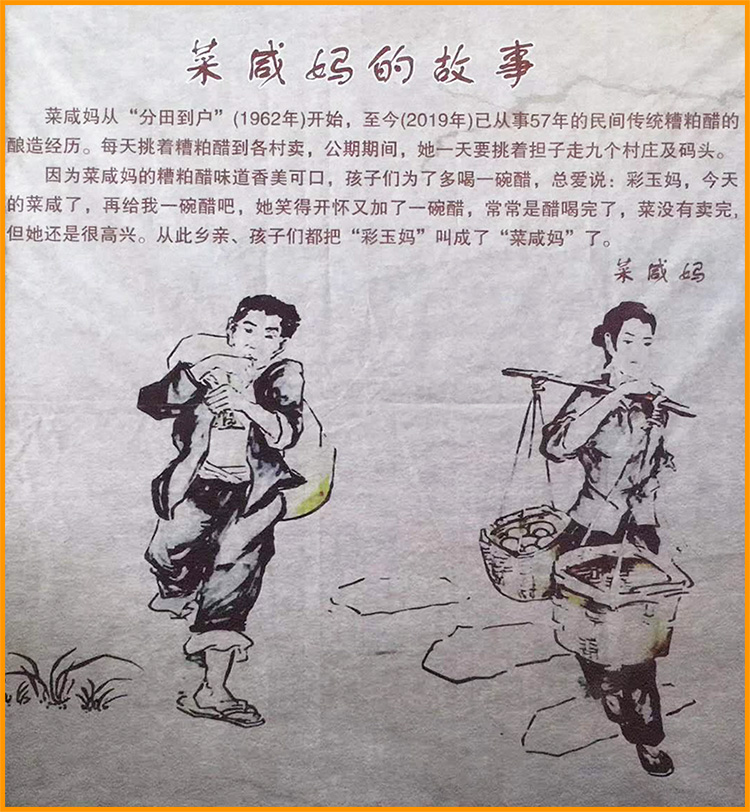 菜咸妈的故事
菜咸妈从“分田到户”(1962年)开始，至今(2019年)已从事57年的民间传统糟粕醋的
酿造经历。每天挑着糟粕醋到各村卖，公期期间，她一天要挑着担子走九个村庄及码头。
因为菜咸妈的糟粕醋味道香美可口，孩子们为了多喝一碗醋，总爱说：彩玉妈，今天
的菜咸了，再给我一碗醋吧，她笑得开怀又加了一碗醋，常常是醋喝完了，菜没有卖完,
但她还是很高兴。从此乡亲、孩子们都把“彩玉妈”叫成了“菜咸妈”了。
菜咸妈